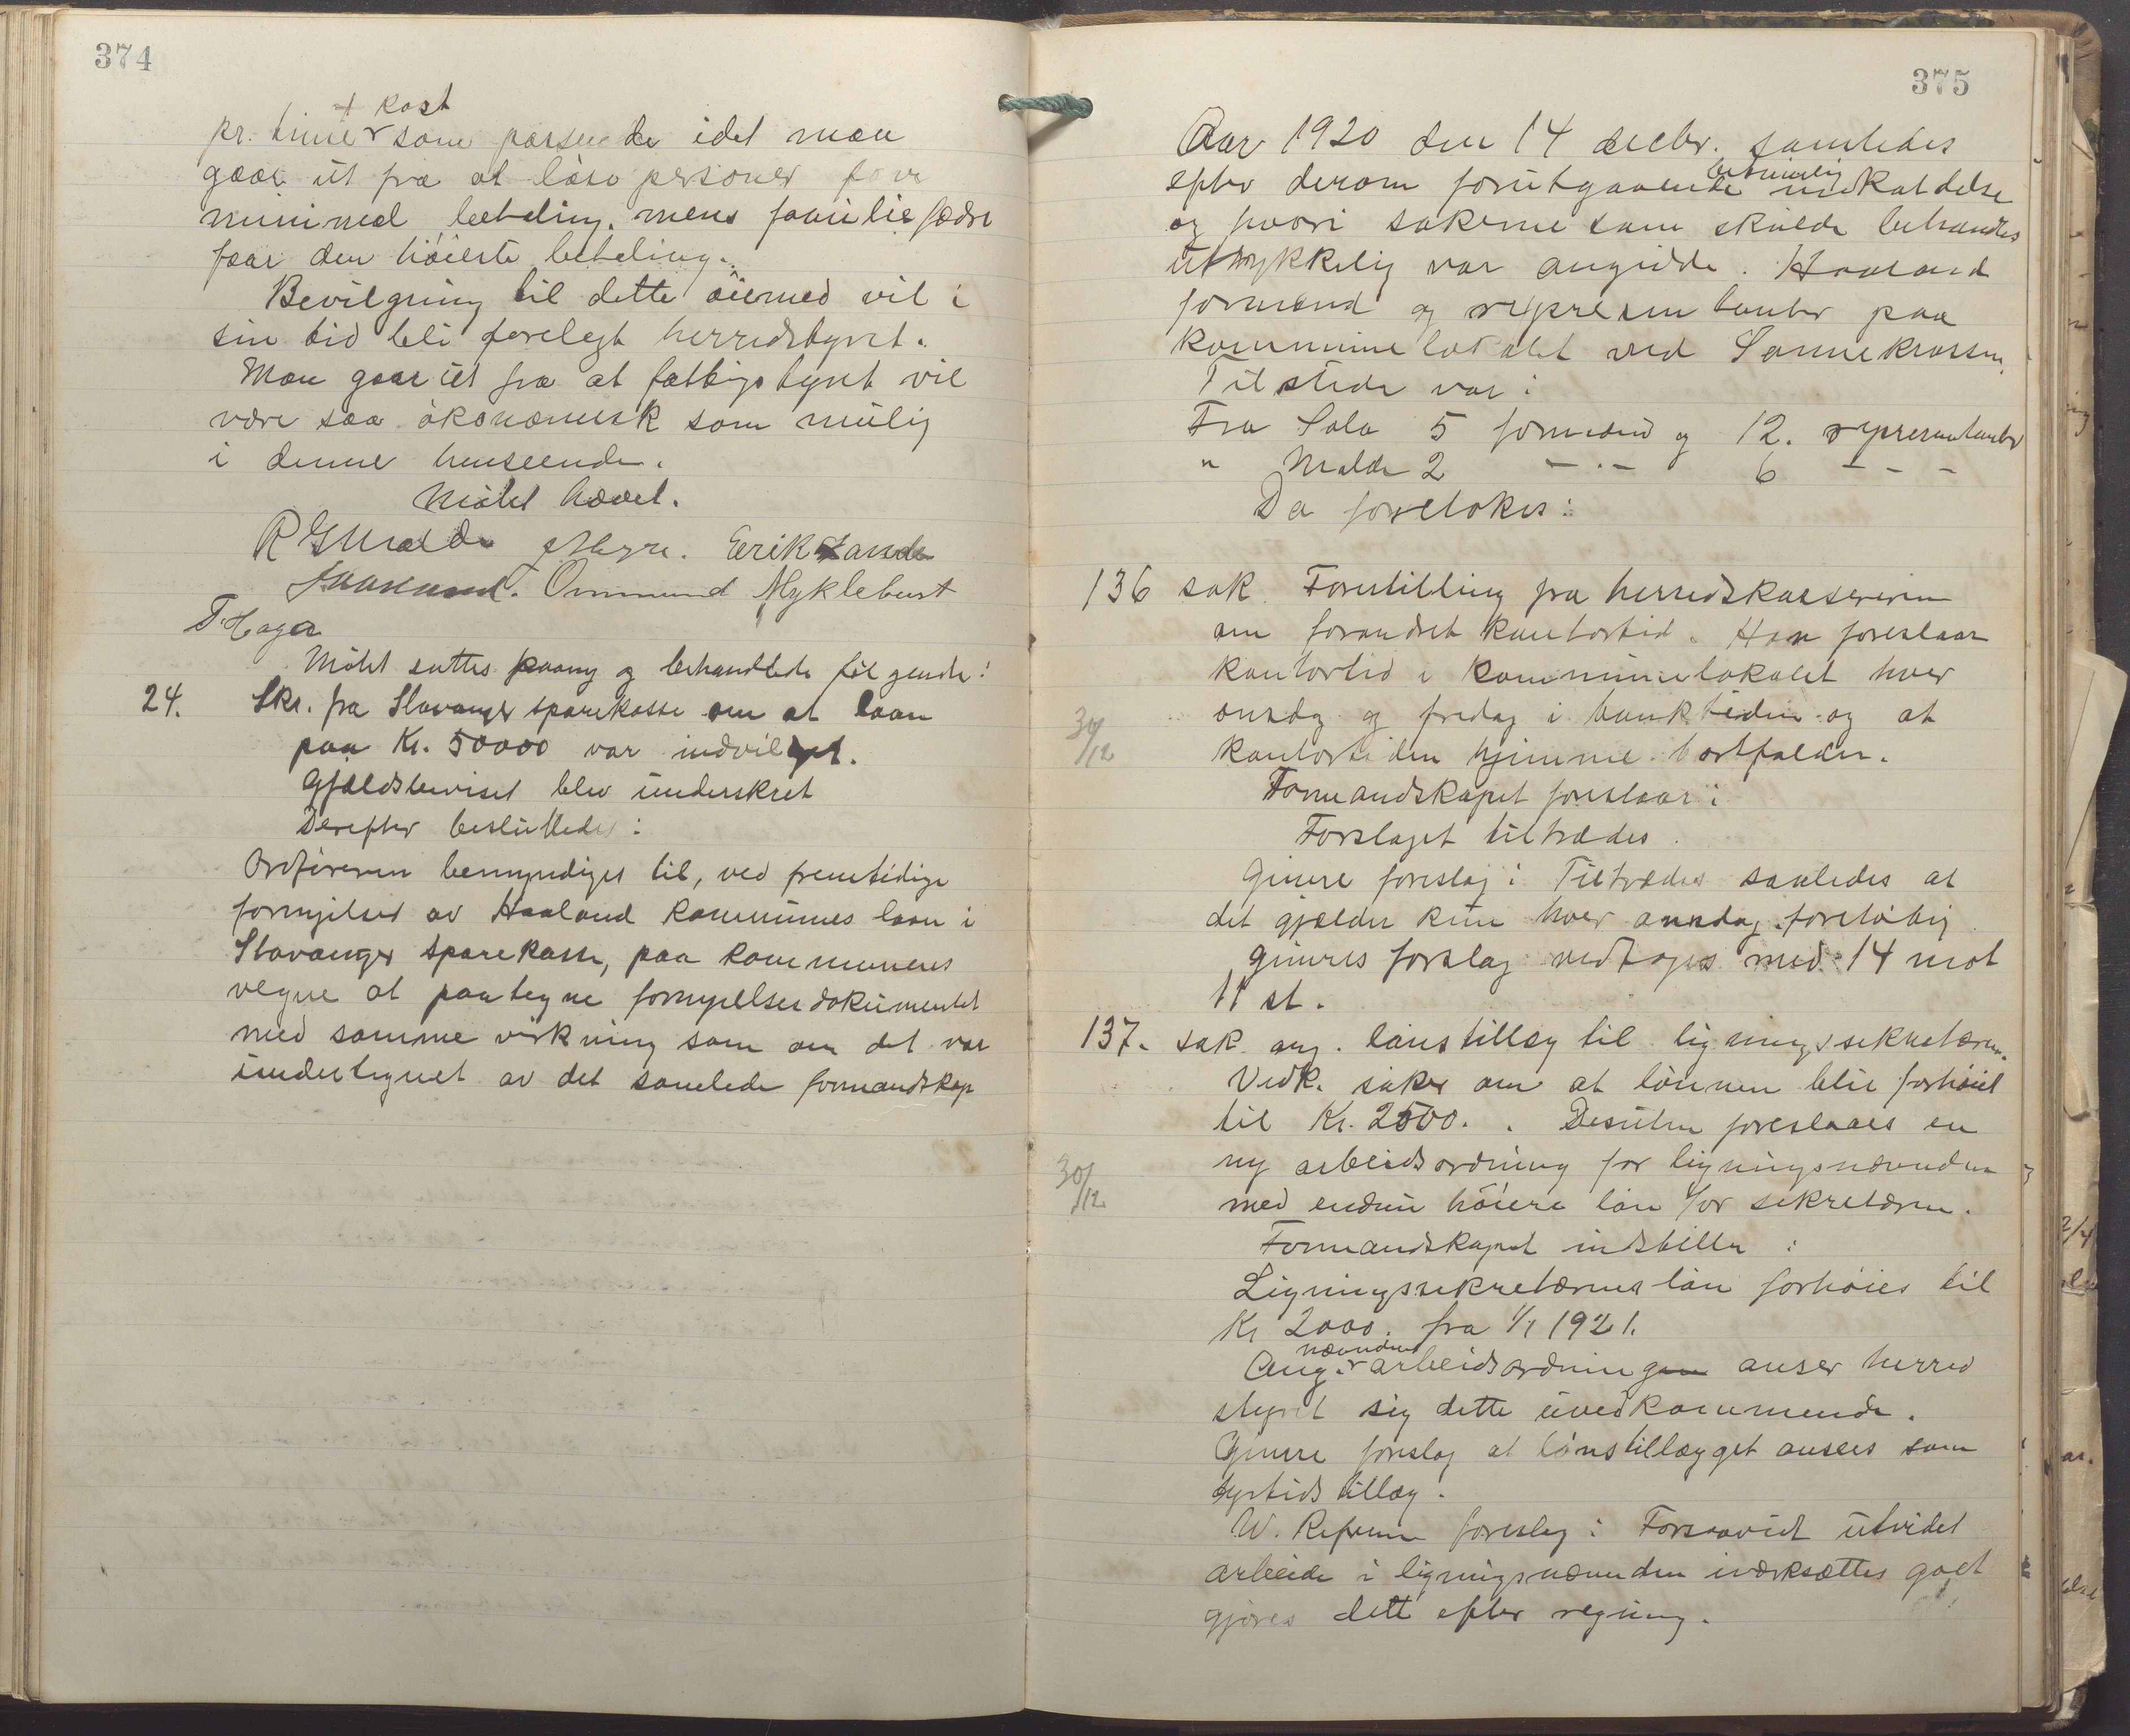 374
+ kost
pr. time som passende idet man
gaar ut fra at løse personer faar
minimal betaling, mens familiefædre
faar den høieste betaling.
Bevilgning til dette øiemed vil i
sin tid bli forelagt herredstyret.
Man gaar ut fra at fattigstyret vil
være saa økonomisk som mulig
i denne henseende.
Møtet hævet.
Erik Sande
Ommund Myklebust
T. Haga
Møtet sattes paany og behandlede følgende:
24. Skr. fra Stavanger sparekasse om at laan
paa Kr. 50000 var indvilget.
Gjældsbeviset blev underskret
Derefter besluttedes:
Ordføreren bemyndiges til, ved fremtidige
fornyelser av Haaland kommunes laan i
Stavanger Sparekasse, paa kommunens
vegne at paategne fornyelsesdokumentet
med samme virkning som om det var
undertegnet av det samlede formandskap
375
Aar 1920 den 14 decbr. samledes
betimelig
efter derom forutgaaende indkaldelse
og hvori sakerne som skulde behandles
uttrykkelig var angivne. Haaland
formænd og repræsentanter paa
kommunelokalet ved Sømmekrossen.
Tilstede var:
Fra Sola 5 formænd og 12. repræsentanter
" Malde 2 - . - 6 - - -
Da foretokes:
136 sak. Forestilling fra herredskassereren
om forandret kontortid. Han foreslaar
kontortid i kommunelokalet hver
onsdag og fredag i banktiden og at
30/12
kontortiden hjemme bortfalder.
Formandskapet foreslaar:
Forslaget tiltrædes.
Gimre foreslog: Tiltrædes saaledes at
det gjælder kun hver onsdag foreløbig
Gimres forslag vedtoges med 14 mot
11 st.
137. sak ang. lønstillæg til ligningssekretæren.
Vedk. søker om at lønnen blir forhøiet
til Kr. 2500. . Desuten foreslaaes en
ny arbeidsordning for ligningsnævnden
30/12
med endnu høiere løn for sekretæren.
Formandskapet indstiller:
Ligningssekretærens løn forhøies til
Kr 2000. fra 1/1 1921.
nævndens
Ang. arbeidsordningen anser herred
styret sig dette uvedkommende.
Gimre foreslog at lønstillægget ansees som
dyrtidstillæg.
W. Refsnes foreslog: Forsaavidt utvidet
arbeide i ligningsnævnden iværksættes godt
gjøres dette efter regning.